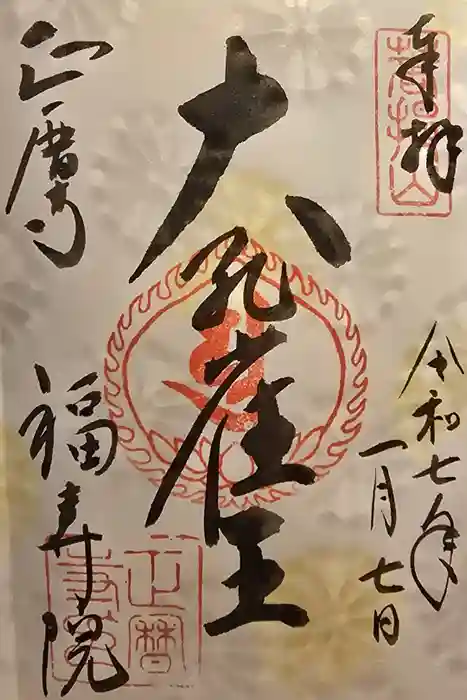 奉拝
令和七年
一月七日
大孔雀王
正暦寺
福寿院